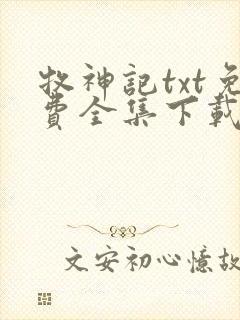 牧神記txt免
費全集下載
文安初心憶故